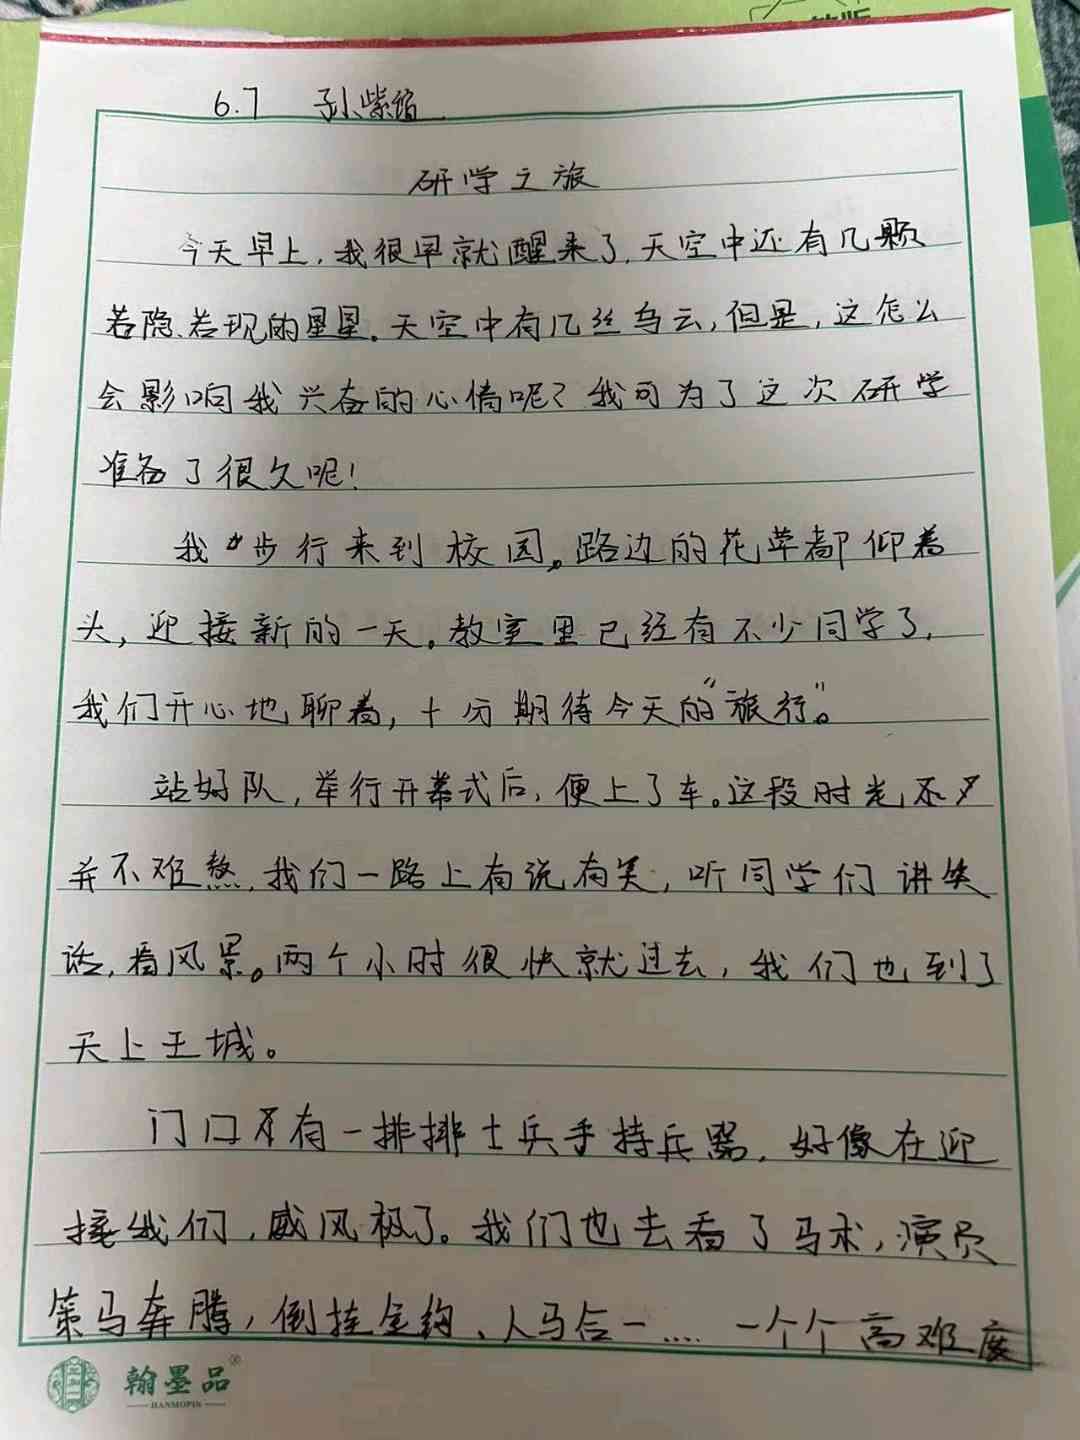 6.7 孙紫馅
研学之旅
今天早上,我很早就醒来了,天空中还有几颗
若隐若现的星星。天空中有几丝乌云,但是,这怎么
会影响我兴奋的心情呢?我可为了这次研学
准备了很久呢!
我步行来到校园。路边的花草都仰着
头,迎接新的一天。教室里已经有不少同学了,
我们开心地聊着,十分期待今天的“旅行”。
站好队,举行开幕式后,便上了车。这段时光
并不难熬,我们一路上有说有笑,听同学们讲笑
话,看风景。两个小时很快就过去,我们也到了
天上王城。
门口有一排排士兵手持兵器,好像在迎
接我们,威风极了。我们也去看了马术,演员
策马奔腾,倒挂金钩、人马合一....一个个高难度
翰墨品®
HANMOPIN